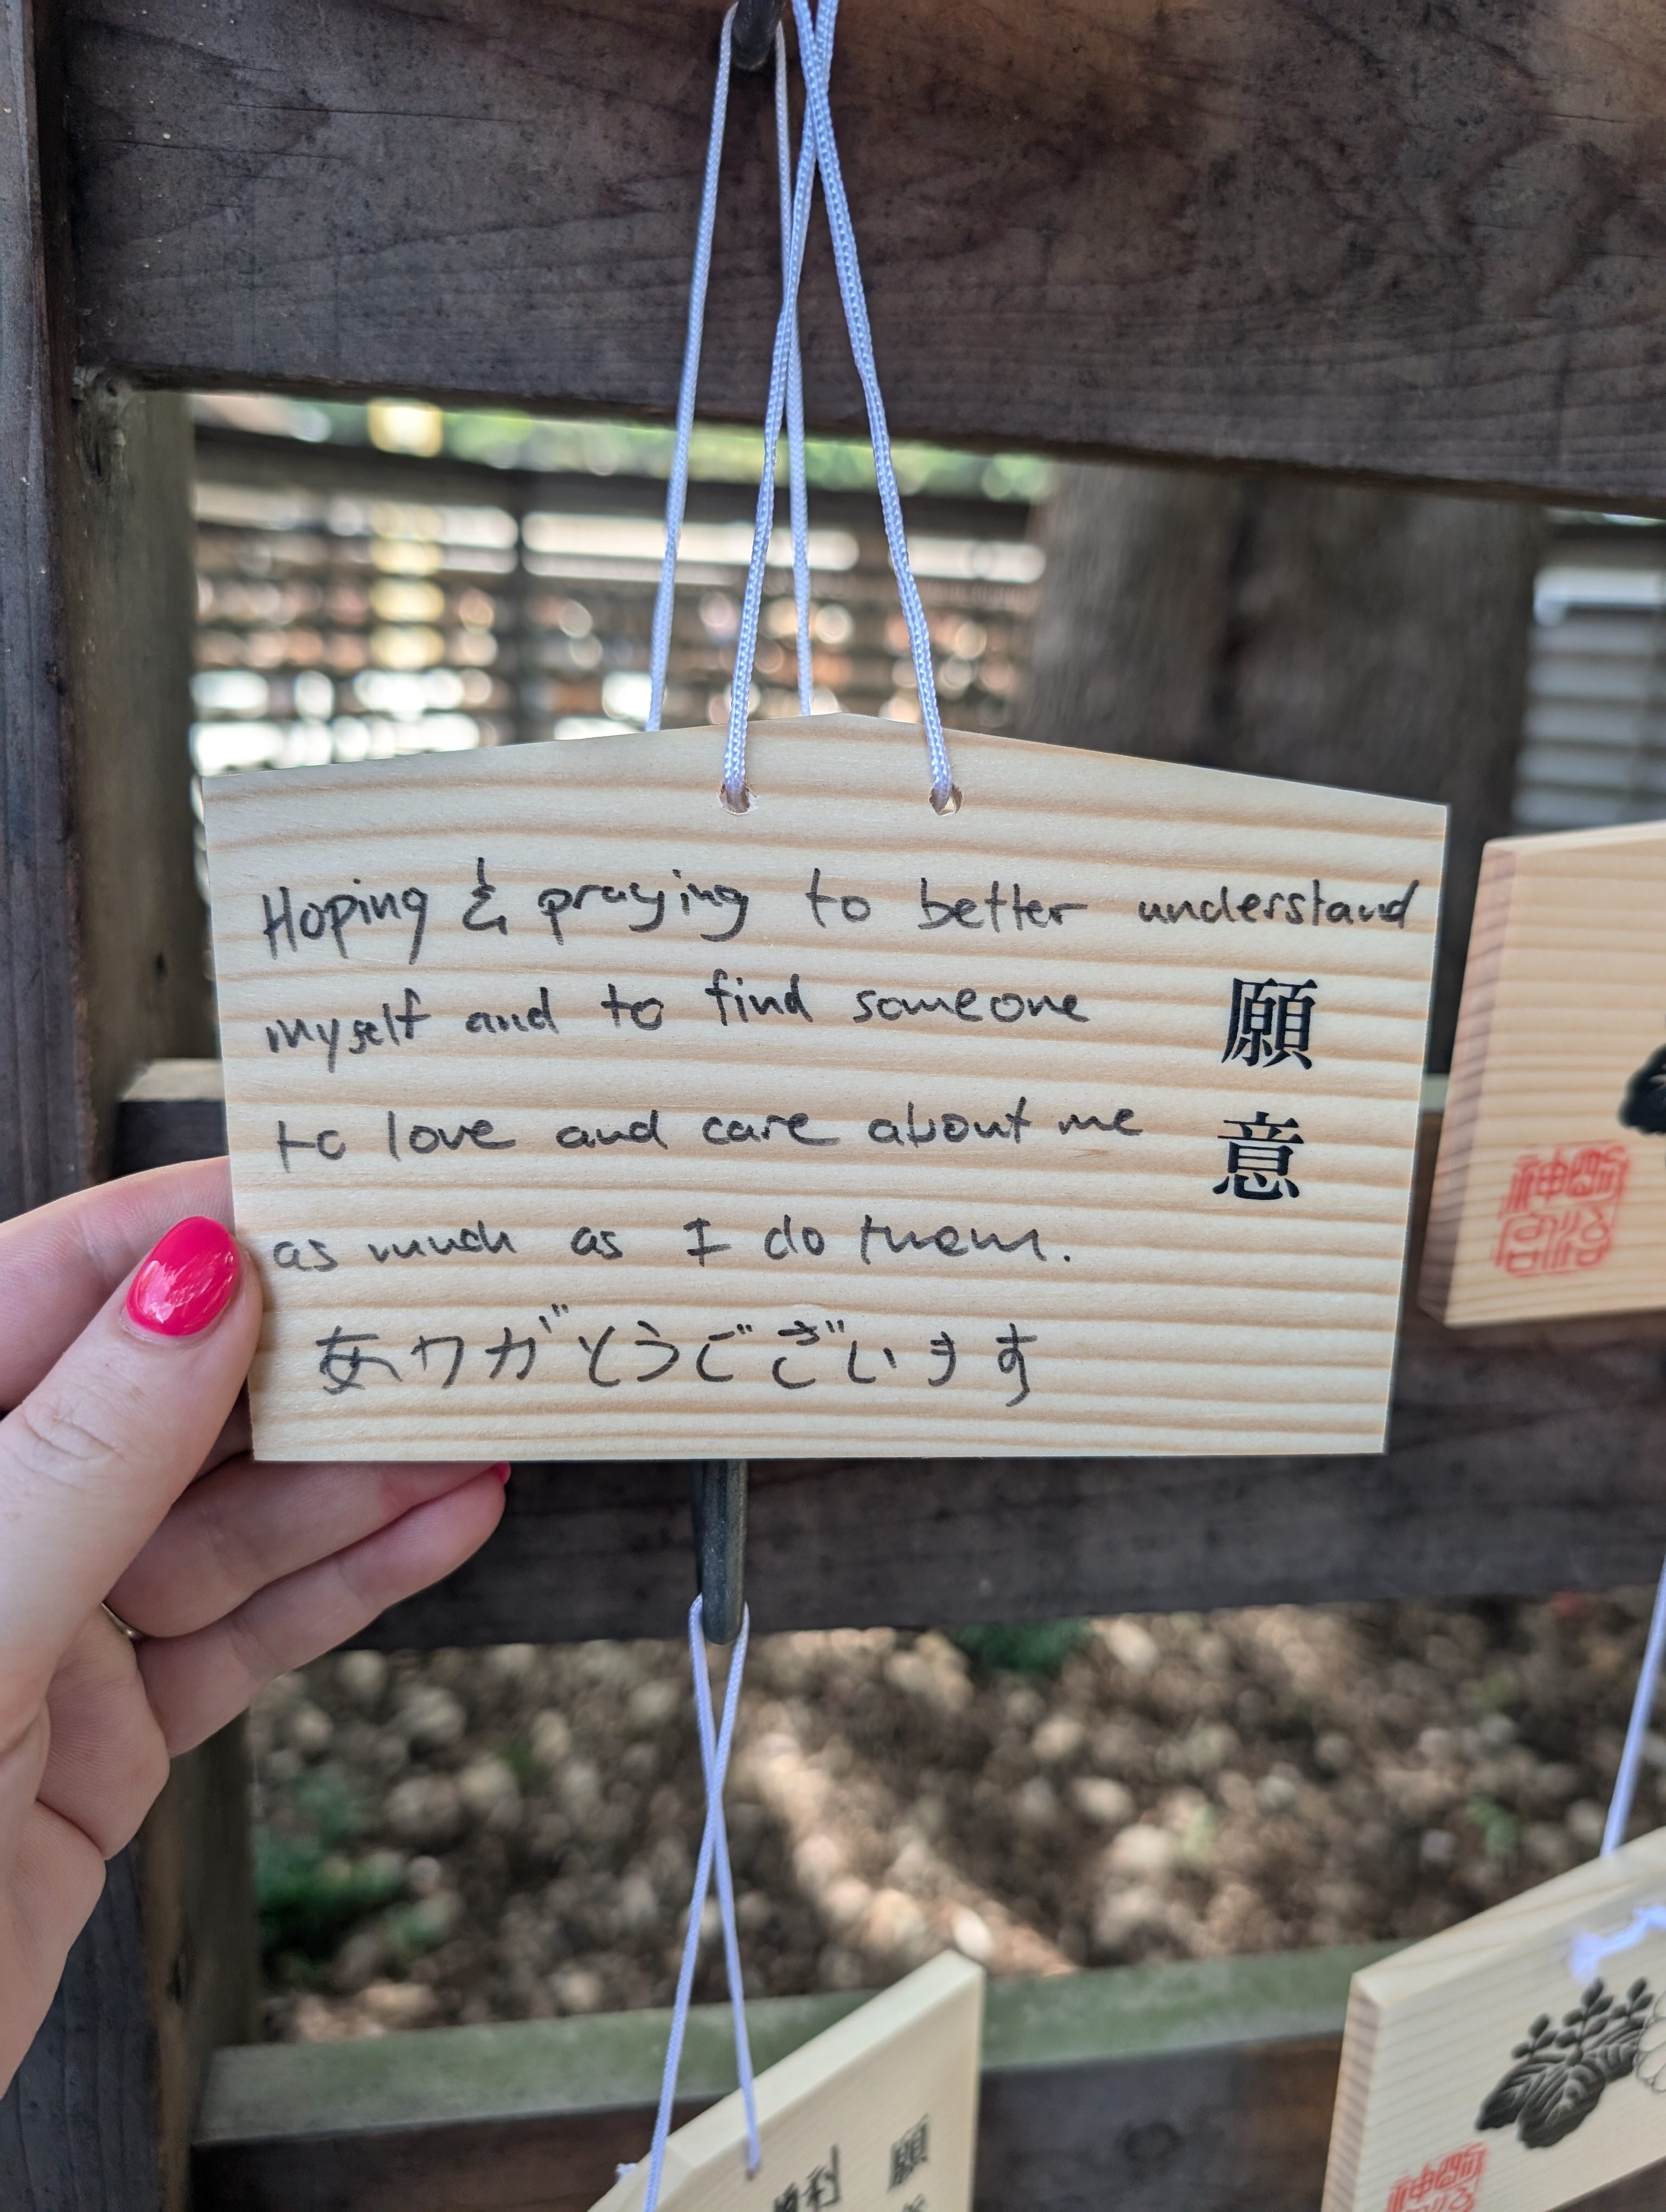 Hoping & praying to better understand
myself and to find someone
to love and care about me
as much as I do them.
ありがとうございます
願意